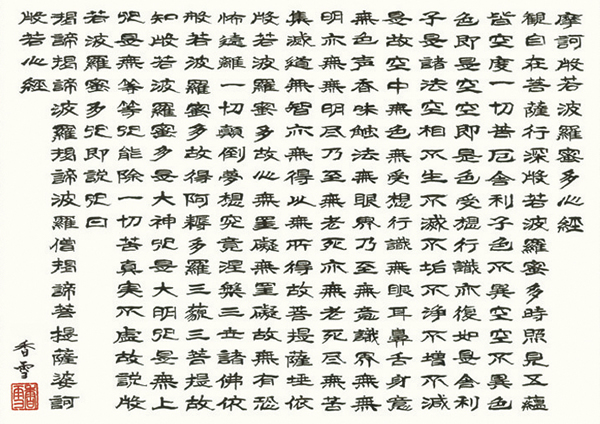 摩訶般若波羅蜜多心經
観自在菩薩行深般若波羅蜜多時照見五蘊
皆空度一切苦厄舎利子色不異空空不異色
色即是空空即是色受想行識亦復如是舎利
子是諸法空相不生不滅不垢不浄不増不減
是故空中無色無受想行識無眼耳鼻舌身意
無色声香味触法無眼界乃至無意識界無無
明亦無無明尽乃至無老死亦無老死尽無苦
集滅道無智亦無得以無所得故菩提薩埵依
般若波羅蜜多故心無罣礙無罣礙故無有恐
怖遠離一切顛倒夢想究竟涅槃三世諸佛依
般若波羅蜜多故得阿耨多羅三藐三菩提故
知般若波羅蜜多是大神呪是大明呪是無上
呪是無等等呪能除一切苦真実不虚故説般
若波羅蜜多呪即説呪曰
揭諦揭諦波羅揭諦波羅僧揭諦菩提薩婆訶
般若心經
香雪